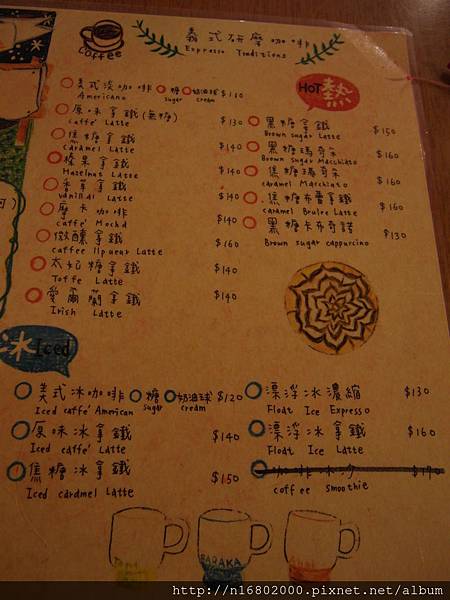 coffee
義式研磨咖啡
Espresso Traditions
HOT 熱
美式淡咖啡 糖 奶油球 $110
Americano sugar cream
原味拿鐵(無糖) $130
Caffe' Latte
焦糖拿鐵 $140
caramel Latte
榛果拿鐵 $140
Hazelnut Latte
香草拿鐵 $140
vanilla Latte
摩卡咖啡 $140
caffe' Mocha
微醺拿鐵 $160
caffee liqueur Latte
太妃糖拿鐵 $140
Toffe Latte
愛爾蘭拿鐵 $140
Irish Latte
黑糖拿鐵 $150
Brown sugar Latte
黑糖瑪奇朵 $160
Brown sugar Macchiato
焦糖瑪奇朵 $160
caramel Macchiato
焦糖布蕾拿鐵 $160
caramel Brulee Latte
黑糖卡布奇諾 $130
Brown sugar cappuccino
冰 Iced
美式冰咖啡 糖 奶油球 $120
Iced caffe' American sugar cream
原味冰拿鐵 $140
Iced caffe' Latte
焦糖冰拿鐵 $150
Iced caramel Latte
漂浮冰濃縮 $130
Float Ice Expresso
漂浮冰拿鐵 $160
Float Ice Latte
咖啡冰沙 $170
coffee smoothie
BARAKA
http://n16802000.pixnet.net/album